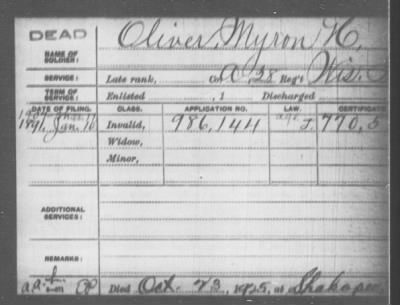 DEAD
Oliver, Myron H.
NAME OF SOLDIER:
SERVICE: Late rank, Co. A, 28 Reg't Wis.
TERM OF SERVICE: Enlisted , 1 Discharged
DATE OF FILING. CLASS. APPLICATION NO. LAW. CERTIFICATE
1891, Jan. 16 Invalid, 986,144 J. 770,5
Widow,
Minor,
ADDITIONAL SERVICES:
REMARKS:
Died Oct. 23, 1925, at Shakopee